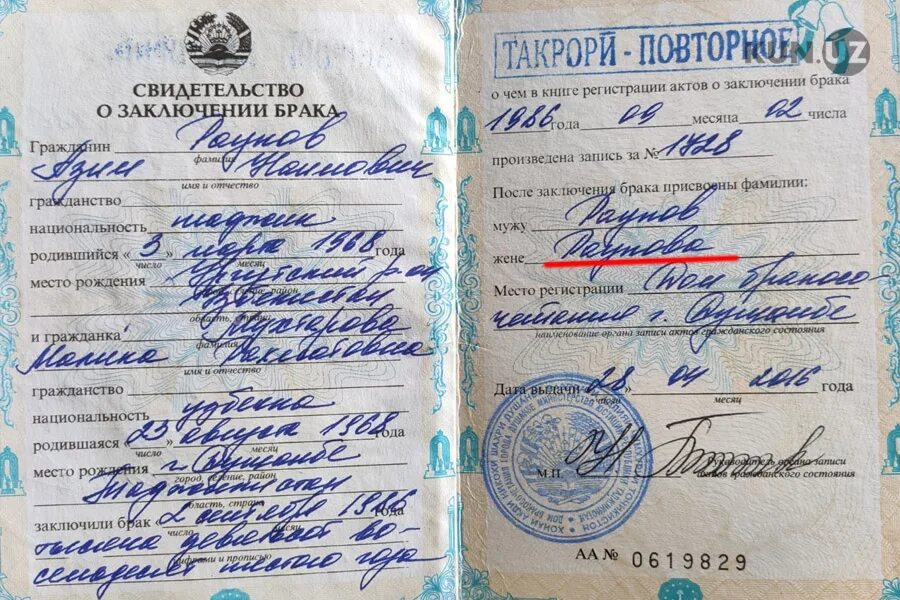 СВИДЕТЕЛЬСТВО
О ЗАКЛЮЧЕНИИ БРАКА
Гражданин Раупов
фамилия
Азим Наимович
имя и отчество
гражданство
национальность таджик
родившийся « 3 » марта 1968 года
число месяц
место рождения Ургутский р-он
город, селение, район
Узбекистан
область, страна
и гражданка Мухтарова
фамилия
Малика Рахматовна
имя и отчество
гражданство
национальность узбечка
родившаяся « 23 » августа 1968 года
число месяц
место рождения г. Душанбе
город, селение, район
Таджикистан
область, страна
заключили брак 2 сентября 1986
число месяц
тысяча девятсот во-
цифрами и прописью
семьдесят шестого года
ТАКРОРӢ - ПОВТОРНОЕ
KUN.UZ
о чем в книге регистрации актов о заключении брака
1986 года 09 месяца 02 числа
произведена запись за № 1728
После заключения брака присвоены фамилии:
мужу Раупов
жене Раупова
Место регистрации Дом брачного
четания г. Душанбе
наименование органа записи актов гражданского состояния
Дата выдачи « 28 » 04 2016 года
число месяц
М.П.
Руководитель органа записи
актов гражданского состояния
АА № 0619829